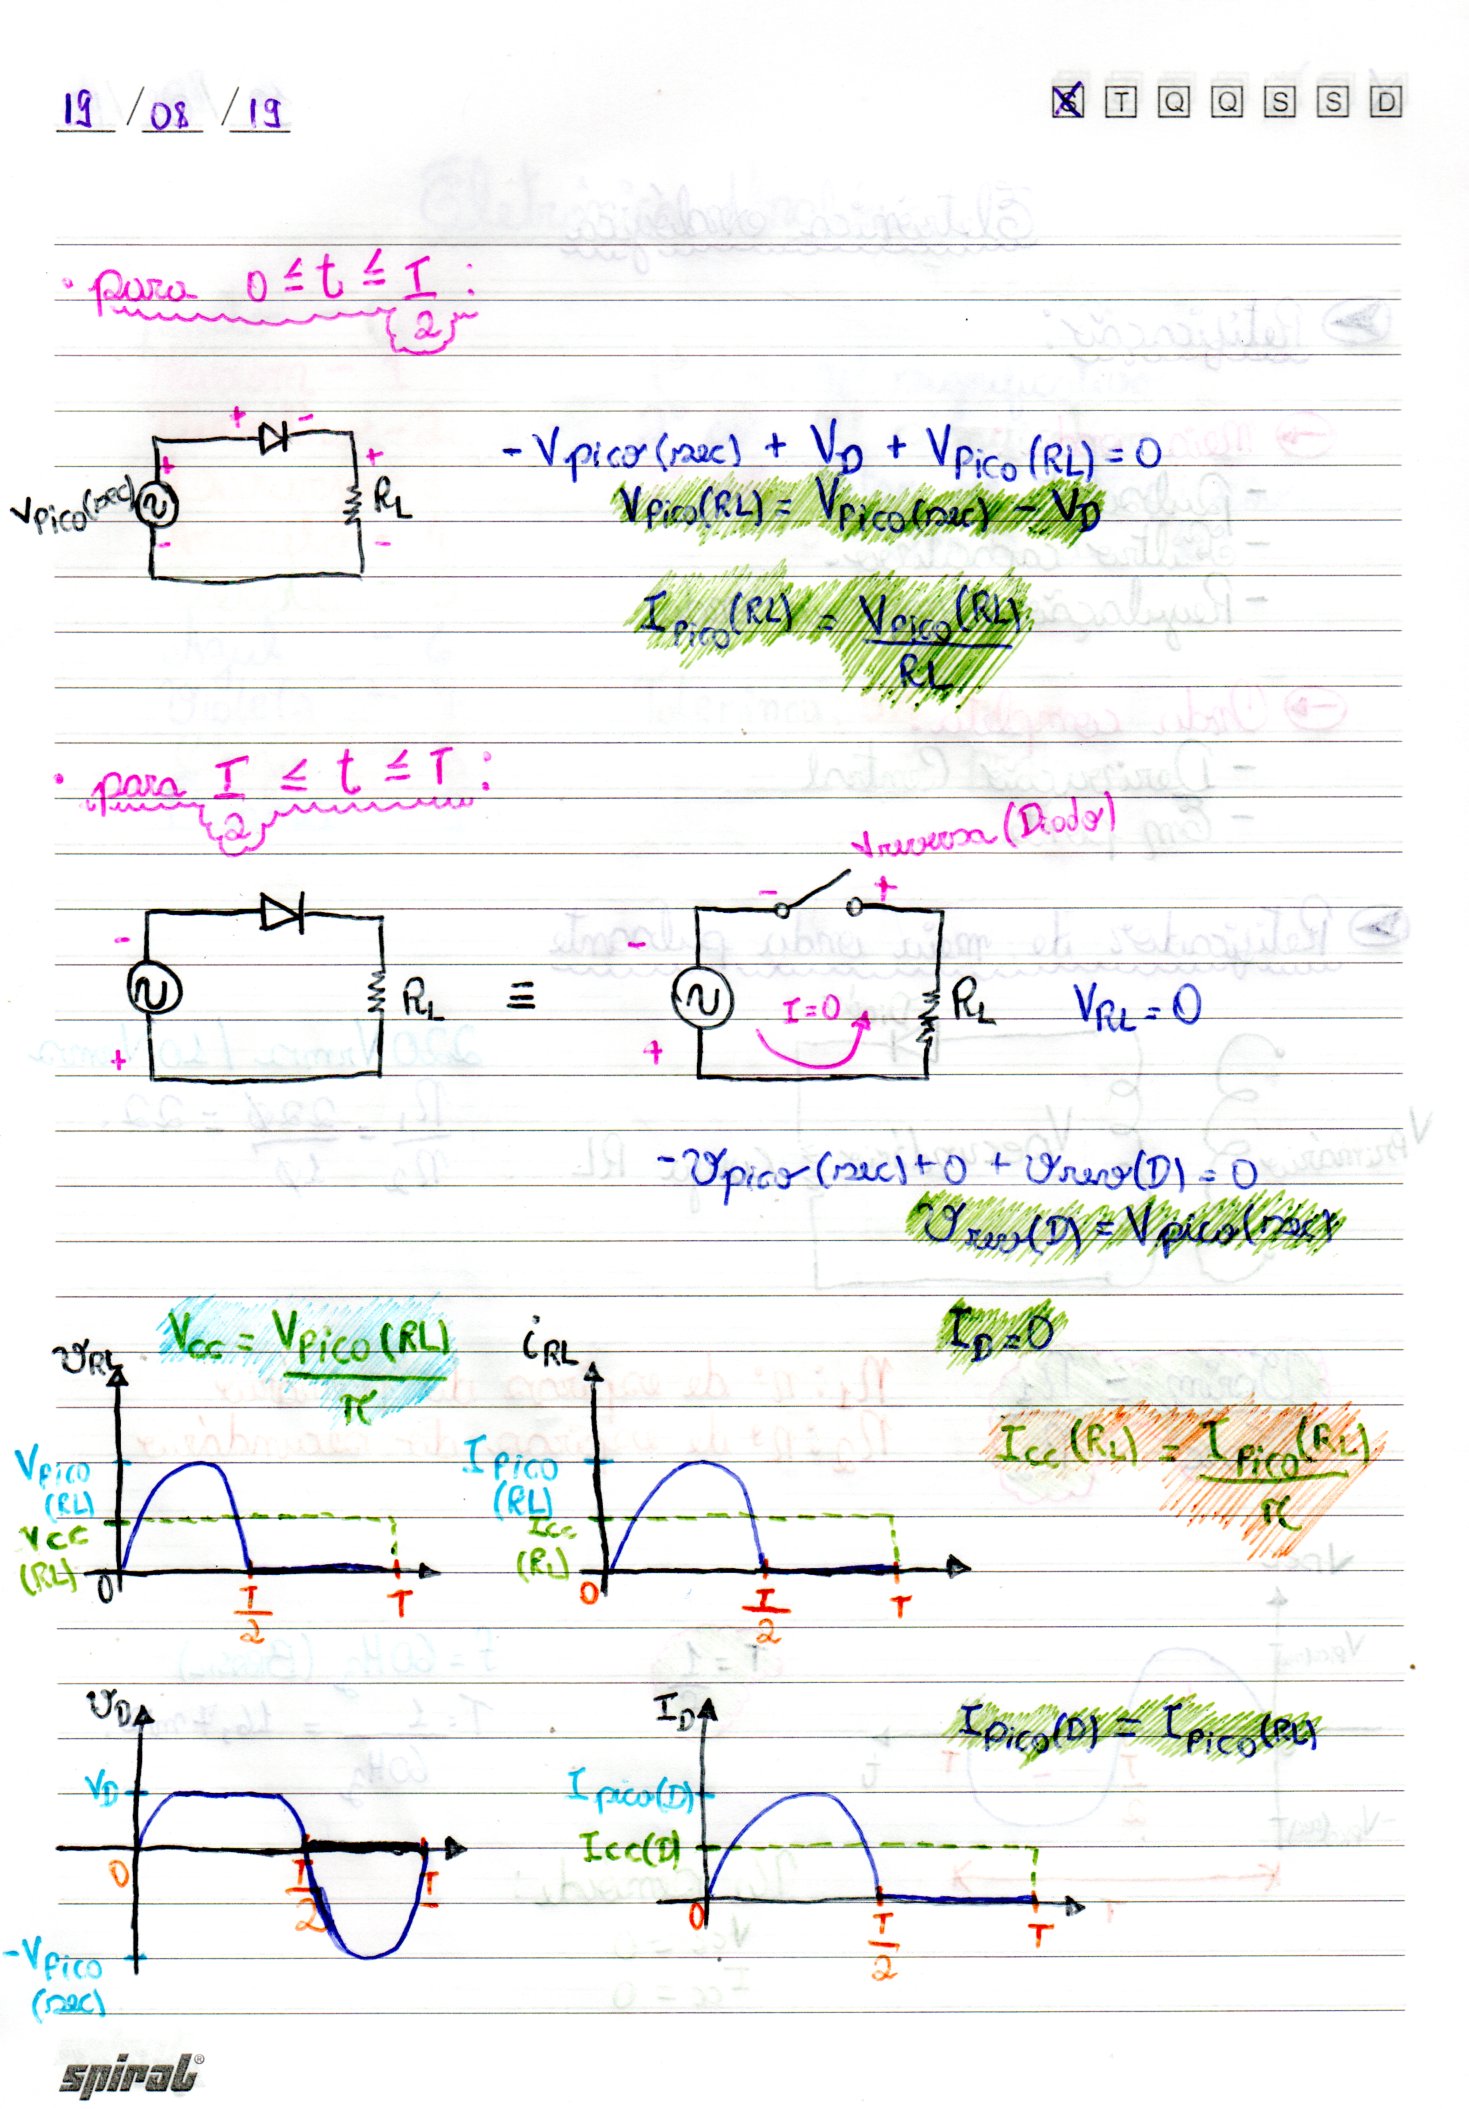 19 / 08 / 19
S T Q Q S S D
• para 0 ≤ t ≤ T/2 :
+ -
+ +
Vpico(sec) RL
- -
-Vpico(sec) + VD + Vpico(RL) = 0
Vpico(RL) = Vpico(sec) - VD
Ipico(RL) = Vpico(RL)/RL
• para T/2 ≤ t ≤ T :
Vreversa (Diodo)
- +
- -
RL ≡ I=0 RL VRL = 0
+ +
-vpico(sec) + 0 + vrev(D) = 0
vrev(D) = Vpico(sec)
ID = 0
Vcc = Vpico(RL)/π
Icc(RL) = Ipico(RL)/π
vRL
Vpico (RL)
Vcc (RL)
0 T/2 T
iRL
Ipico (RL)
Icc (RL)
0 T/2 T
vD
VD
0 T/2 T
-Vpico (sec)
ID
Ipico(D)
Icc(D)
0 T/2 T
Ipico(D) = Ipico(RL)
spiral®